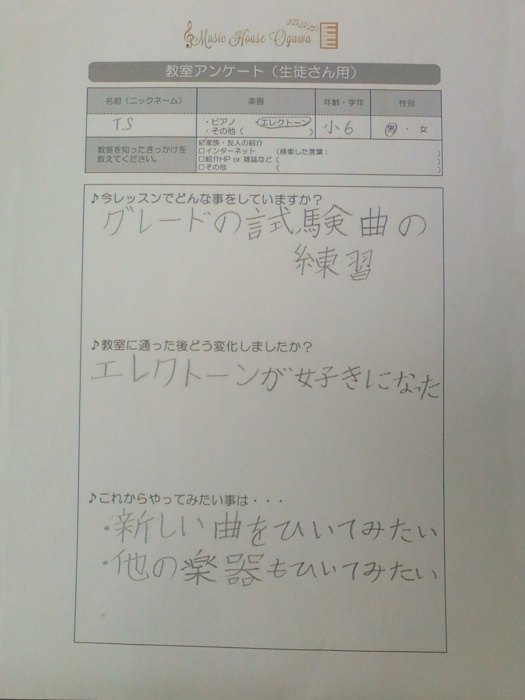 Music House Ogawa
教室アンケート（生徒さん用）
名前（ニックネーム） 楽器 年齢・学年 性別
T.S ・ピアノ エレクトーン 小6 男 ・ 女
・その他（ ）
教室を知ったきっかけを ☑家族・友人の紹介
教えてください。 □インターネット （検索した言葉： ）
□紹介HP or 雑誌など（ ）
□その他 （ ）
♪今レッスンでどんな事をしていますか？
グレードの試験曲の
練習
♪教室に通った後どう変化しましたか？
エレクトーンが好きになった
♪これからやってみたい事は・・・
・新しい曲をひいてみたい
・他の楽器もひいてみたい